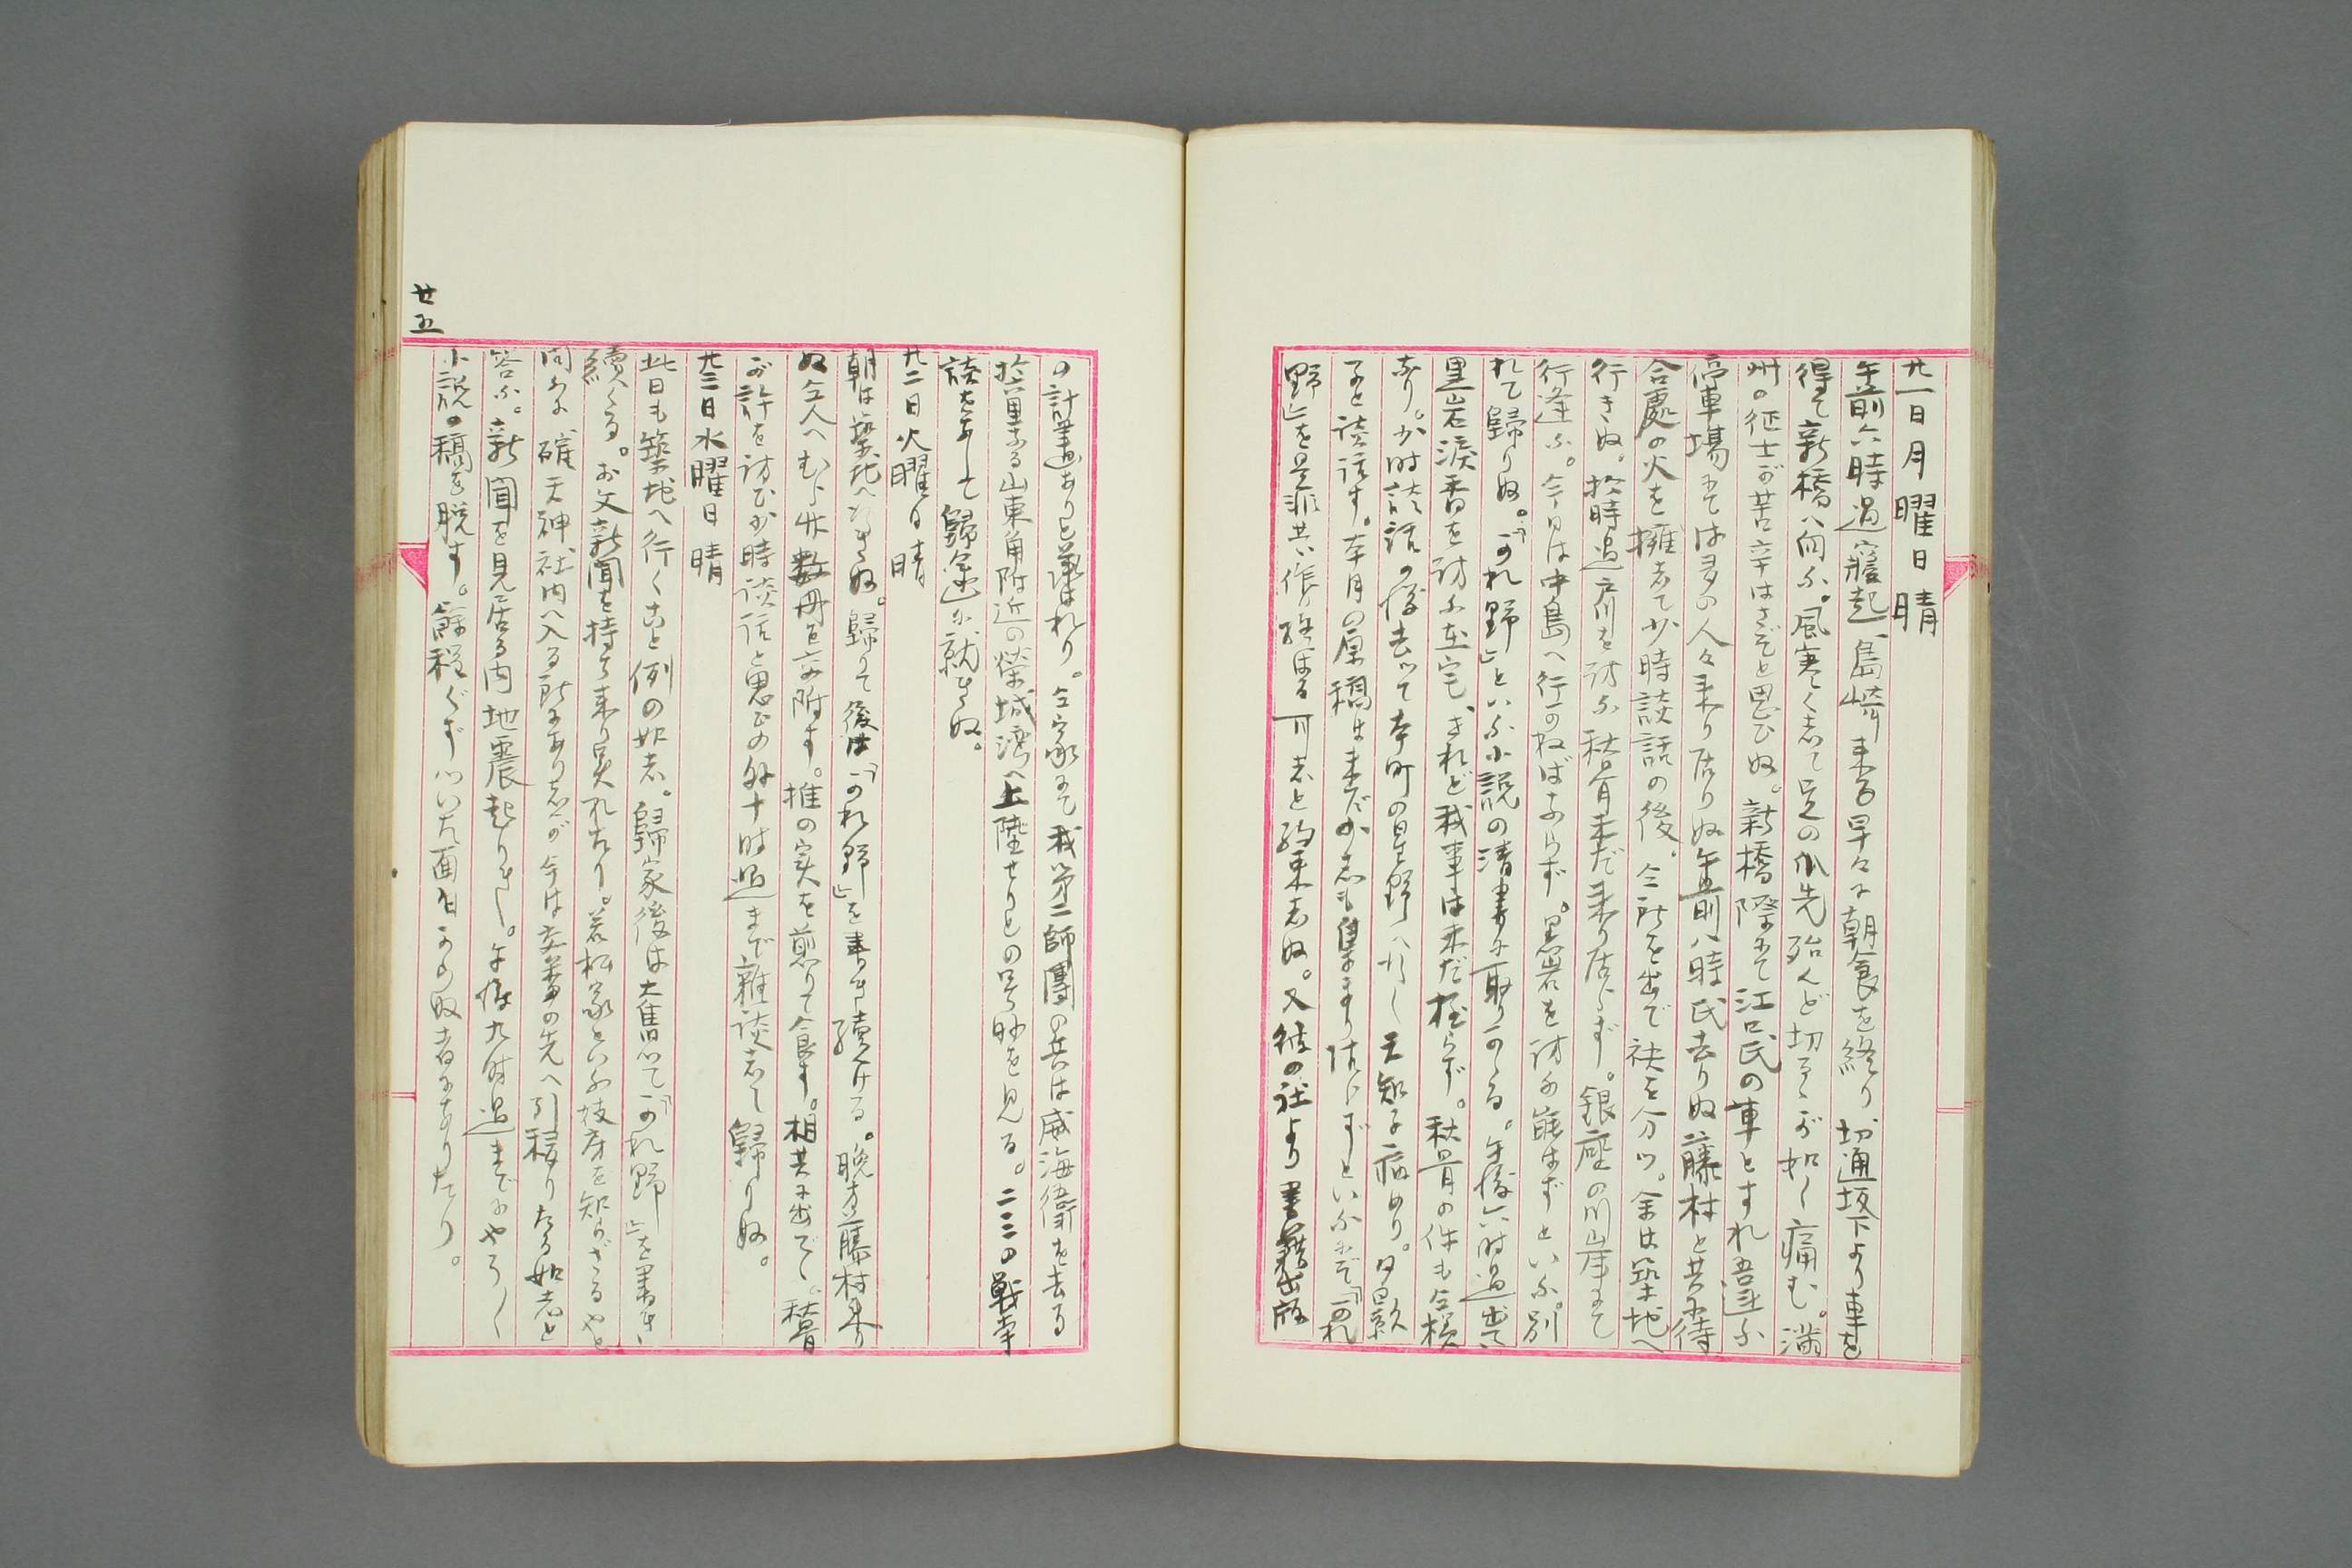 廿一日月曜日 晴
午前六時過寤起、島崎来る早々に朝食を終り、切通坂下より車を
得て新橋へ向ふ。風寒く志て足の爪先殆んど切るゝが如く痛む。満
州の征士が苦辛はさぞと思ひぬ。新橋際にて江口氏の車とすれ吾違ふ
停車場にては多の人々来り居りぬ午前八時氏去りぬ藤村と共に待
合處の火を擁志て少時談話の後。仝所を出で袂を分つ。余は築地へ
行きぬ。拾時過戸川を訪ふ秋骨未だ来り居らず。銀座の川岸にて
行逢ふ。今日は中島へ行かねばならずと。黒岩を訪ふ能はずといふ。別
れて歸りぬ。「かれ野」といふ小説の清書に取りかゝる。午後六時過出で
黒岩涙香を訪ふ在宅、されど我事は未だ極らず。秋骨の件も仝様
なり。少時談話の後去つて本町の星野へ行く天知子病めり。夕影
子と談話す。本月の原稿は未だ少志も集まり居らずといふにぞ「かれ
野」を是非共、作り雄はる可志と約束志ぬ。又彼の社より書籍出版
の計畫ありと語はれり。仝家にて我第二師團の兵は威海衛を去る
拾六里なる山東角附近の榮城湾へ上陸せりとの号外を見る。二三の戦争
談をなして歸途に就きぬ。
廿二日火曜日 晴
朝は築地へ行きぬ。歸りて後は「かれ野」を書き續ける。晩方藤村来り
ぬ仝人へむら竹数冊を交附す。椎の実を煎りて食す。相共に出で、秋骨
が許を訪ひ少時談話と思ひの外十時過まで雑談志て歸りぬ。
廿三日水曜日 晴
此日も築地へ行くこと例の如志。歸家後は大奮つて「かれ野」を書き
續くる。お文新聞を持ち来り呉れたり。若松家といふ妓房を知らざるやと
問ふに確天神社内へ入る所にあり志が今は交番の先へ引移りたる如志と
答ふ。新聞を見居る内地震起りき。午後九時過までにやうく
小説の稿を脱す。餘程ぐずついた面白からぬ者にてありたり。
廿五